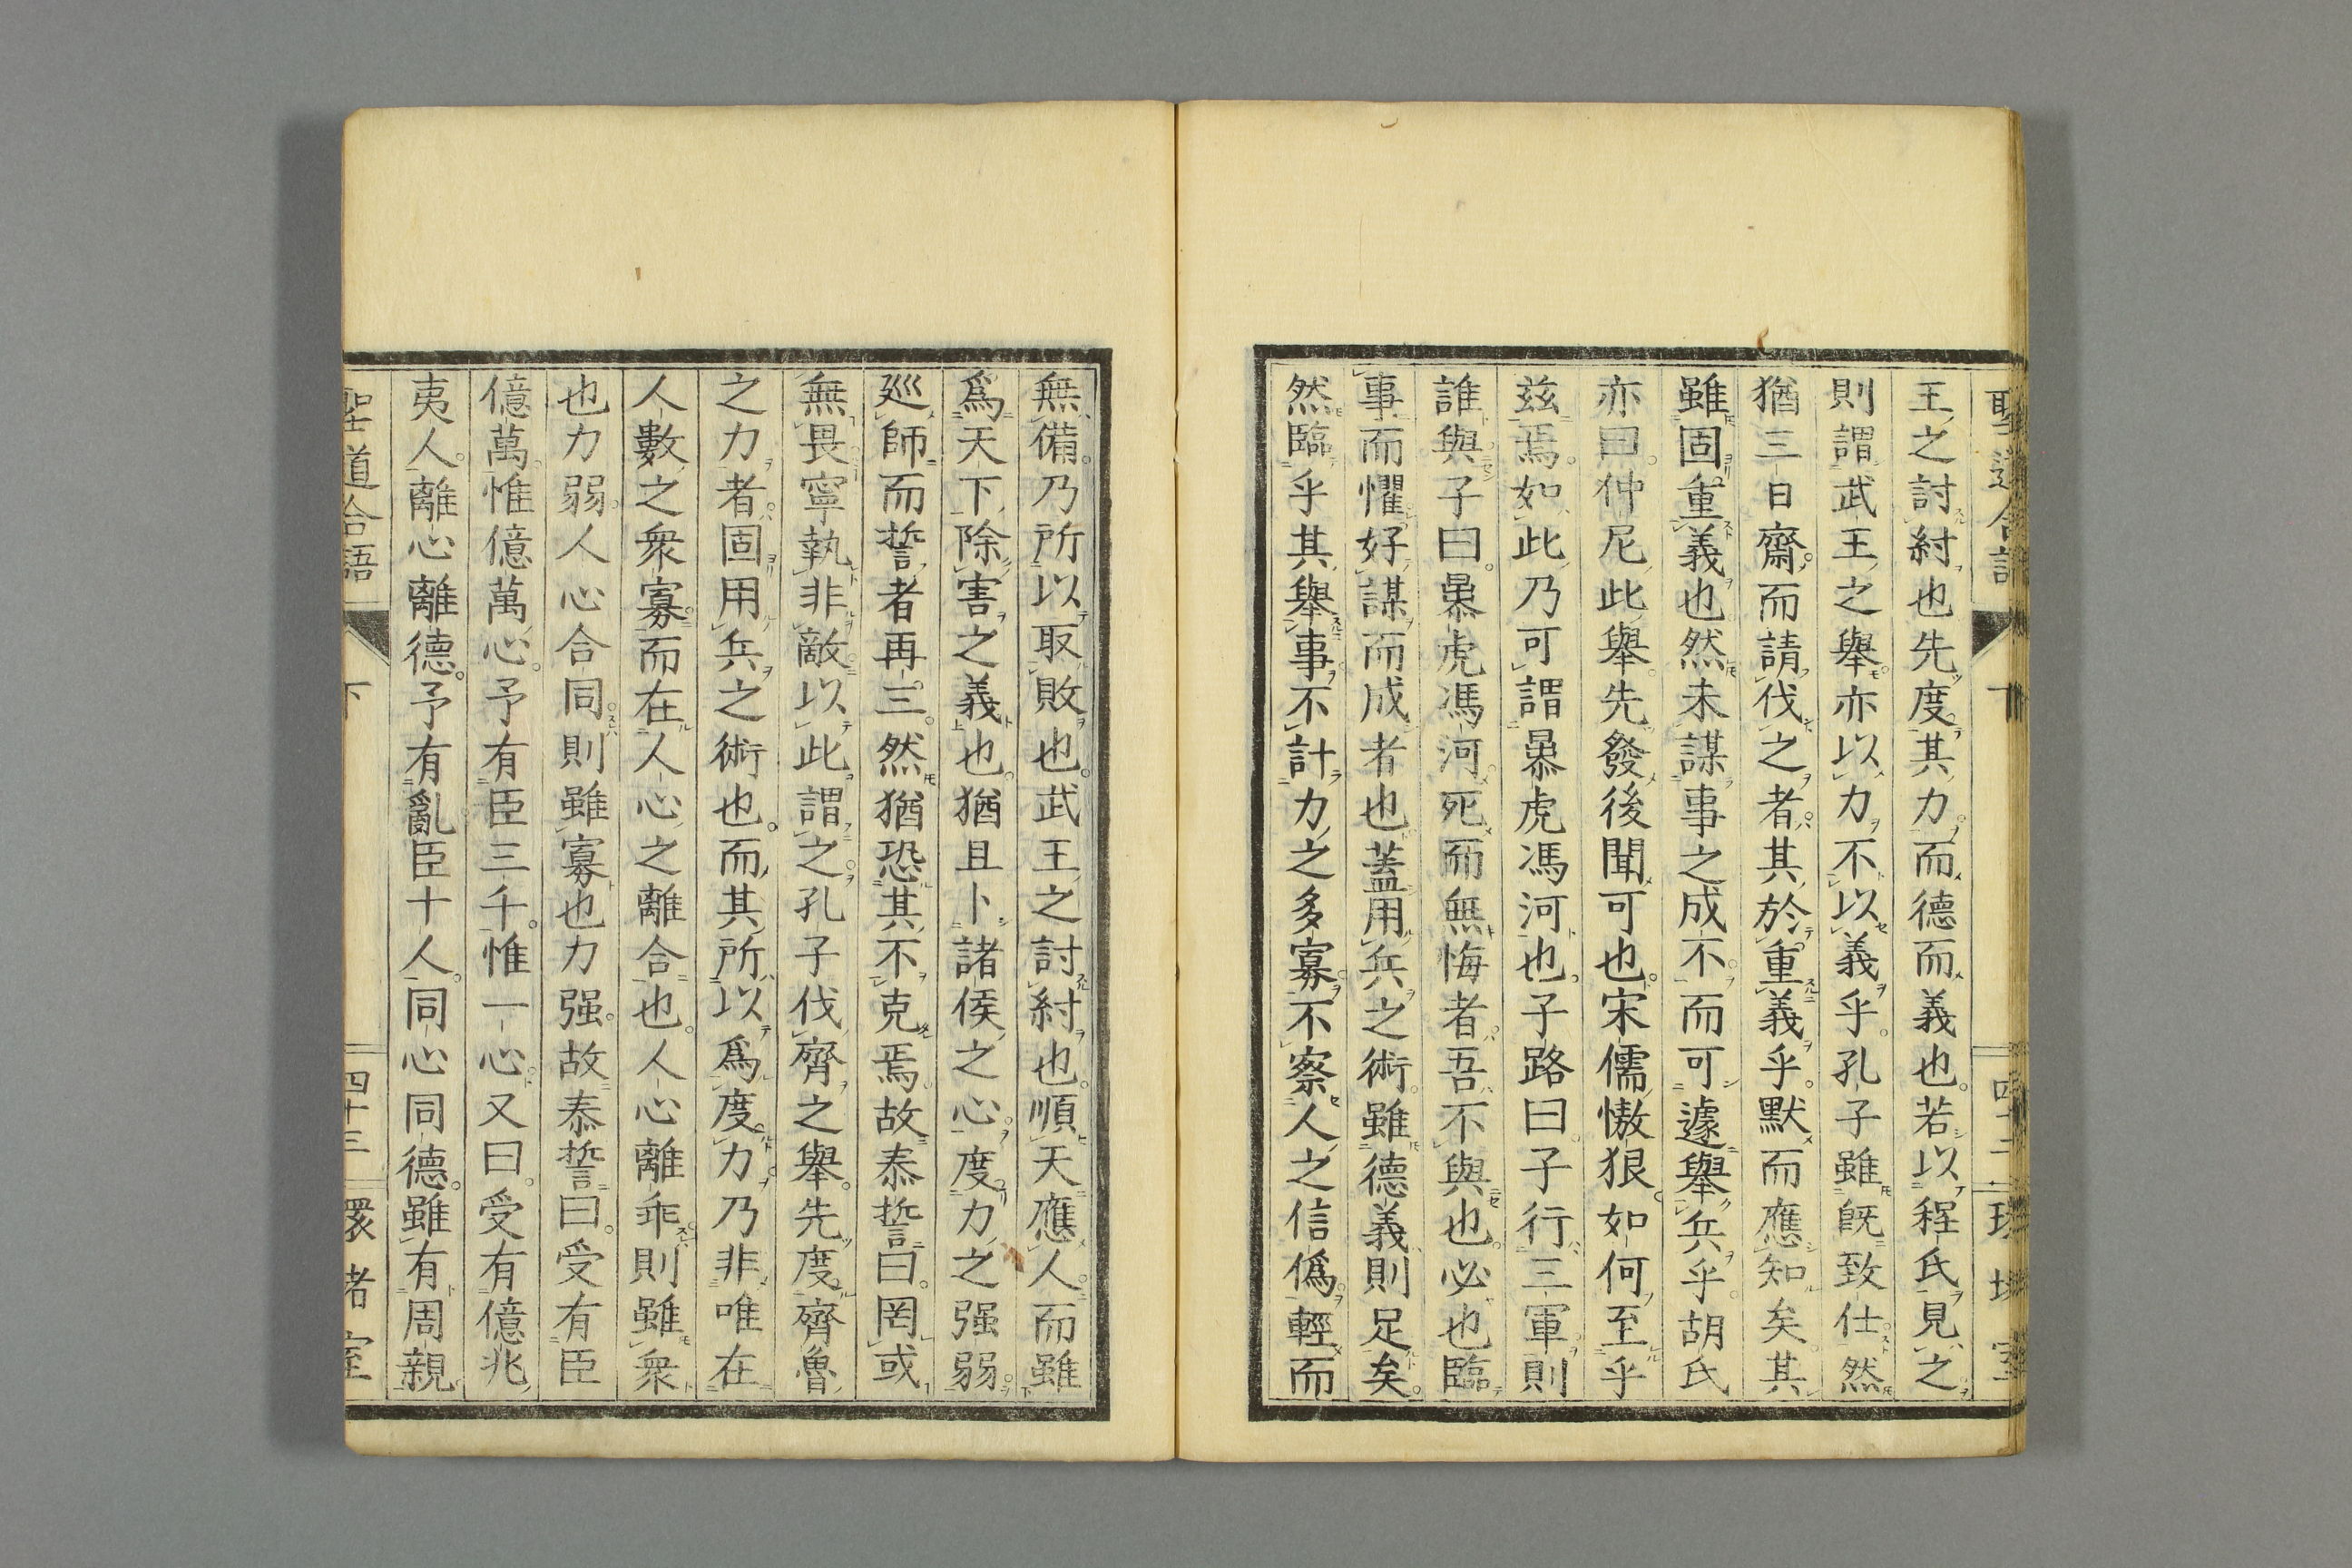 聖道合語　下　四十二
王之討紂也先度其力而德而義也若以程氏見之
則謂武王之舉亦以力不以義乎孔子雖旣致仕然
猶三日齋而請伐之者其於重義乎默而應知矣其
雖固重義也然未謀事之成不而可遽舉兵乎胡氏
亦曰仲尼此舉先發後聞可也宋儒傲狠如何至乎
玆焉如此乃可謂暴虎馮河也子路曰子行三軍則
誰與子曰暴虎馮河死而無悔者吾不與也必也臨
事而懼好謀而成者也蓋用兵之術雖德義則足矣
然臨乎其舉事不計力之多寡不察人之信僞輕而
無備乃所以取敗也武王之討紂也順天應人而雖
爲天下除害之義也猶且卜諸侯之心度力之强弱
巡師而誓者再三然猶恐其不克焉故泰誓曰罔或
無畏寧執非敵以此謂之孔子伐齊之舉先度齊魯
之力者固用兵之術也而其所以爲度力乃非唯在
人數之衆寡而在人心之離合也人心離乖則雖衆
也力弱人心合同則雖寡也力强故泰誓曰受有臣
億萬惟億萬心予有臣三千惟一心又曰受有億兆
夷人離心離德予有亂臣十人同心同德雖有周親
聖道合語　下　四十三　環堵室